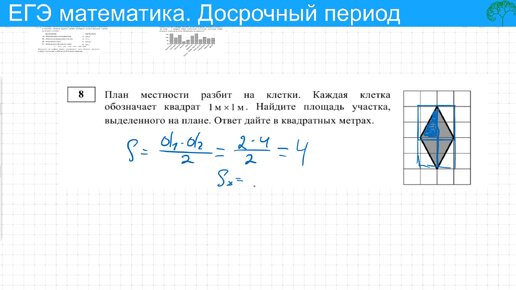 ЕГЭ математика. Досрочный период
8
План местности разбит на клетки. Каждая клетка
обозначает квадрат 1 м × 1 м. Найдите площадь участка,
выделенного на плане. Ответ дайте в квадратных метрах.
S = d₁·d₂/2 = 2·4/2 = 4